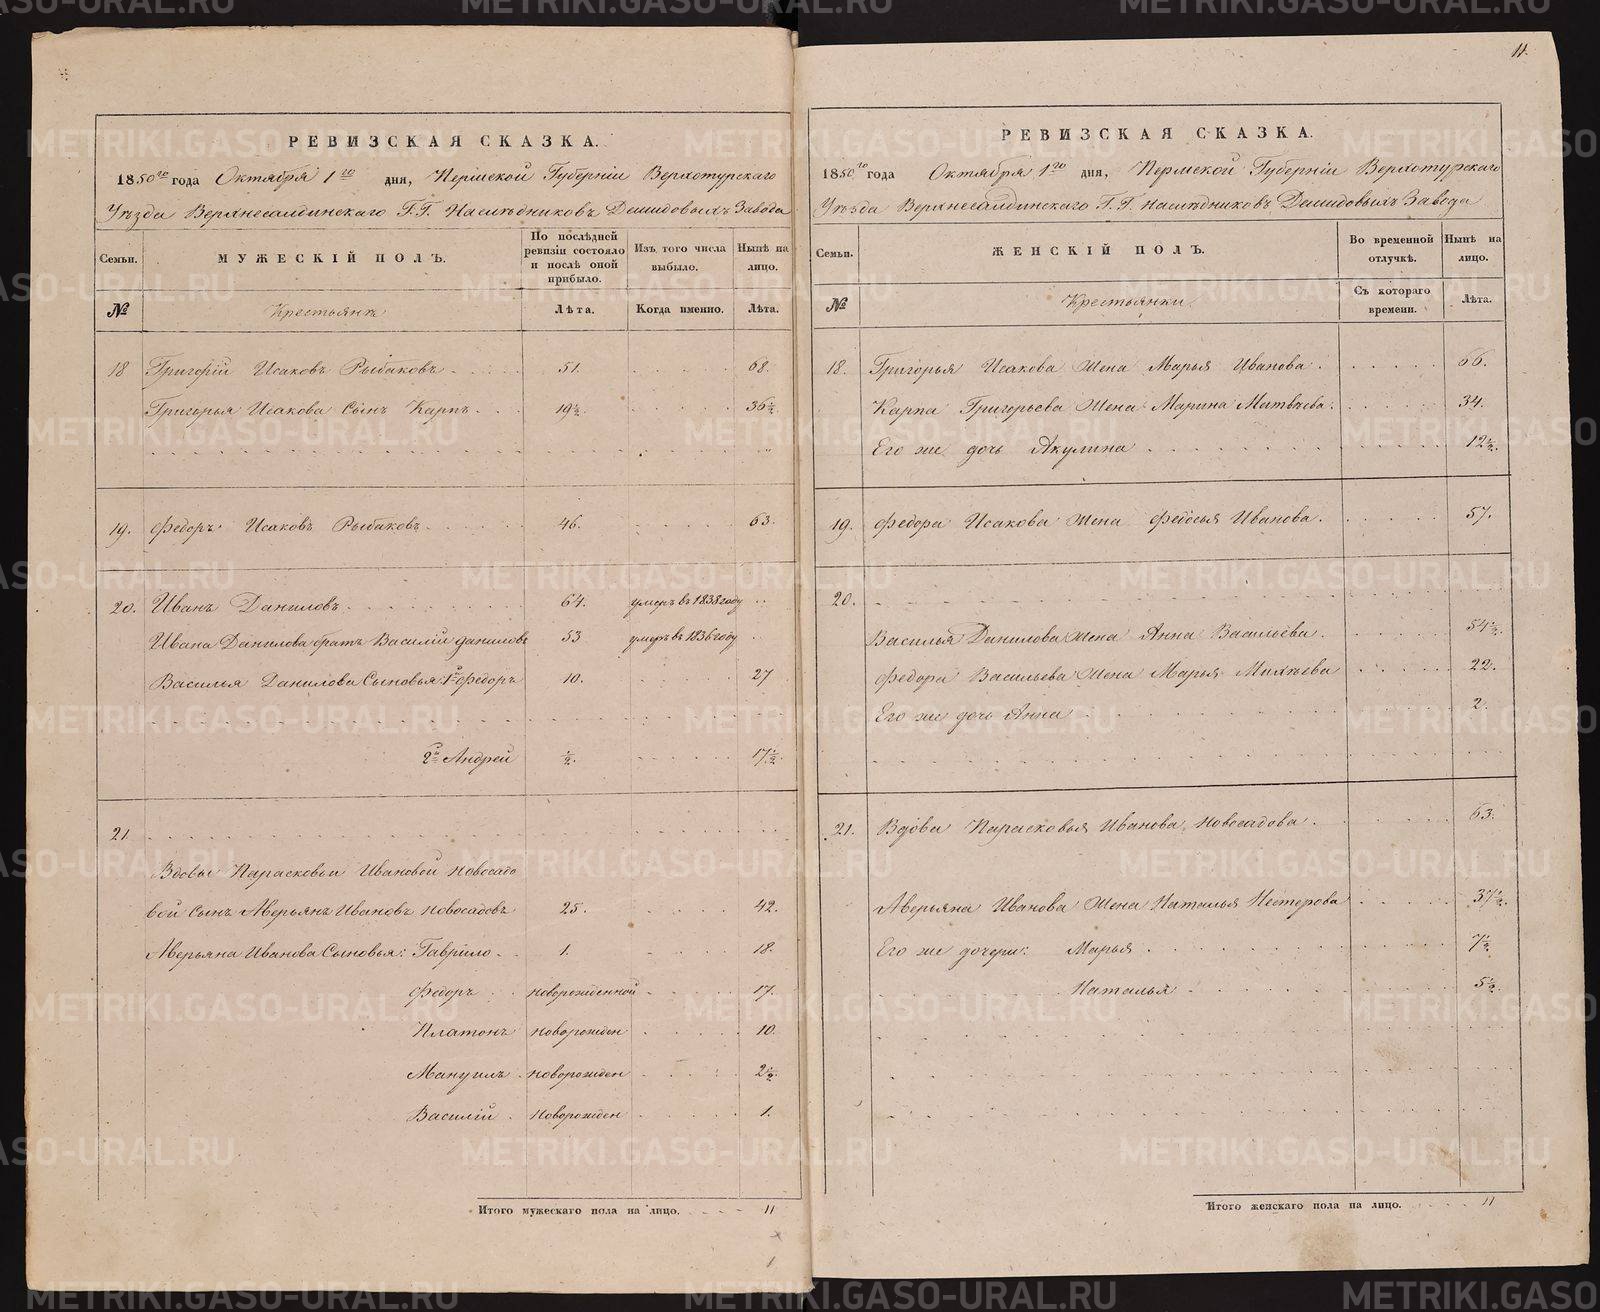 РЕВИЗСКАЯ СКАЗКА.
1850го года Октября 1го дня, Пермской Губерніи Верхотурскаго
Уѣзда Верхнесалдинскаго Г.Г. Наслѣдниковъ Демидовыхъ Завода
Семьи.
МУЖЕСКІЙ ПОЛЪ.
По послѣдней ревизіи состояло и послѣ оной прибыло.
Изъ того числа выбыло.
Нынѣ на лицо.
№
Крестьянъ
Лѣта.
Когда именно.
Лѣта.
18 Григорій Исаковъ Рыбаковъ 51. 68.
Григорья Исакова Сынъ Карпъ 19½ 36½
19. Федоръ Исаковъ Рыбаковъ 46. 63.
20. Иванъ Даниловъ 64. умеръ въ 1838 году
Ивана Данилова братъ Василій Даниловъ 53 умеръ въ 1836 году
Василья Данилова Сыновья: 1й Федоръ 10. 27
2й Андрей ½ 17½
21
Вдовы Парасковьи Ивановой Новосадо
вой Сынъ Аверьянъ Ивановъ Новосадовъ 25. 42.
Аверьяна Иванова Сыновья: Гаврило 1. 18.
Федоръ новорожденной 17.
Платонъ новорожден 10.
Мануилъ новорожден 2½
Василій новорожден 1.
Итого мужескаго пола на лицо. 11
11.
РЕВИЗСКАЯ СКАЗКА.
1850го года Октября 1го дня, Пермской Губерніи Верхотурскаго
Уѣзда Верхнесалдинскаго Г.Г. Наслѣдниковъ Демидовыхъ Завода
Семьи.
ЖЕНСКІЙ ПОЛЪ.
Во временной отлучкѣ.
Нынѣ на лицо.
№
Крестьянки
Съ котораго времени.
Лѣта.
18. Григорья Исакова Жена Марья Иванова. 66.
Карпа Григорьева Жена Марина Матвѣева. 34.
Его же дочь Акулина 12½
19. Федора Исакова Жена Федосья Иванова. 57.
20.
Василья Данилова Жена Анна Васильева. 54½
Федора Васильева Жена Марья Михѣева 22.
Его же дочь Анна 2.
21. Вдова Парасковья Иванова Новосадова. 63.
Аверьяна Иванова Жена Наталья Нестерова 37½
Его же дочери: Марья 7½
Наталья 5½
Итого женскаго пола на лицо. 11
METRIKI.GASO-URAL.RU